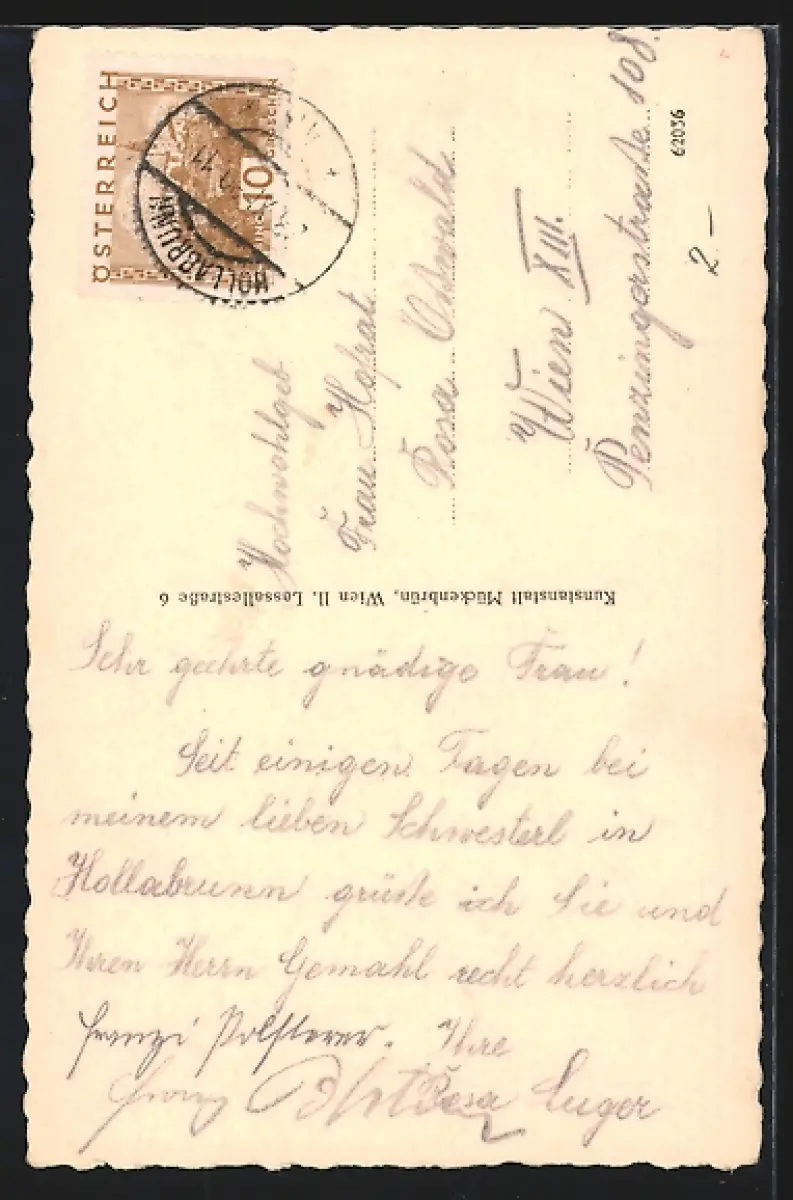 ÖSTERREICH
10
GROSCHEN
HOLLABRUNN
Hochwohlgeb
Frau Hofrat
Rosa Ostwald
Wien XIII.
Penzingerstrasse 108.
62036
2 –
Kunstanstalt Mückenbrün, Wien II. Lassallestraße 6
Sehr geehrte gnädige Frau!
Seit einigen Tagen bei
meinem lieben Schwesterl in
Hollabrunn grüße ich Sie und
Ihren Herrn Gemahl recht herzlich
Franzi Polsterer. Ihre
Franz Rosa Luger